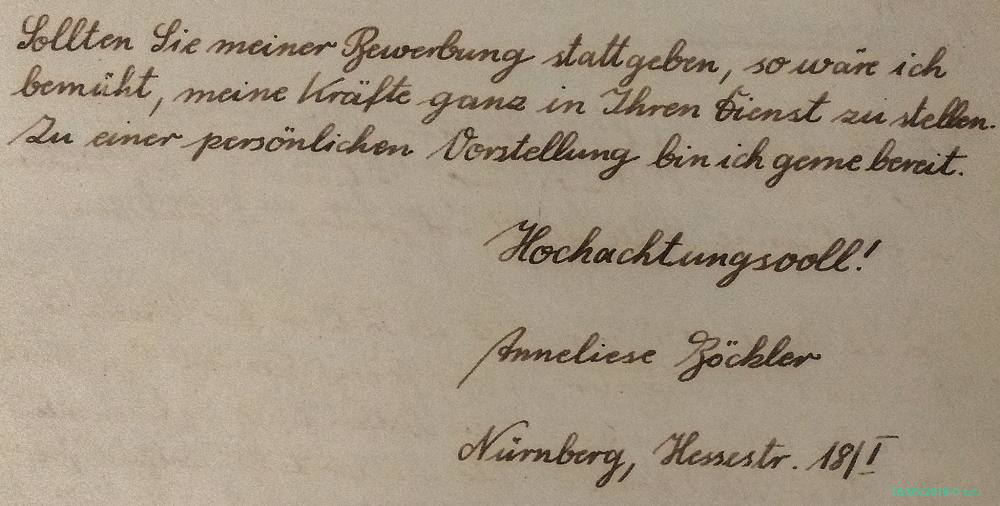 Sollten Sie meiner Bewerbung stattgeben, so wäre ich
bemüht, meine Kräfte ganz in Ihren Dienst zu stellen.
Zu einer persönlichen Vorstellung bin ich gerne bereit.
Hochachtungsvoll!
Anneliese Böckler
Nürnberg, Hessestr. 18/I